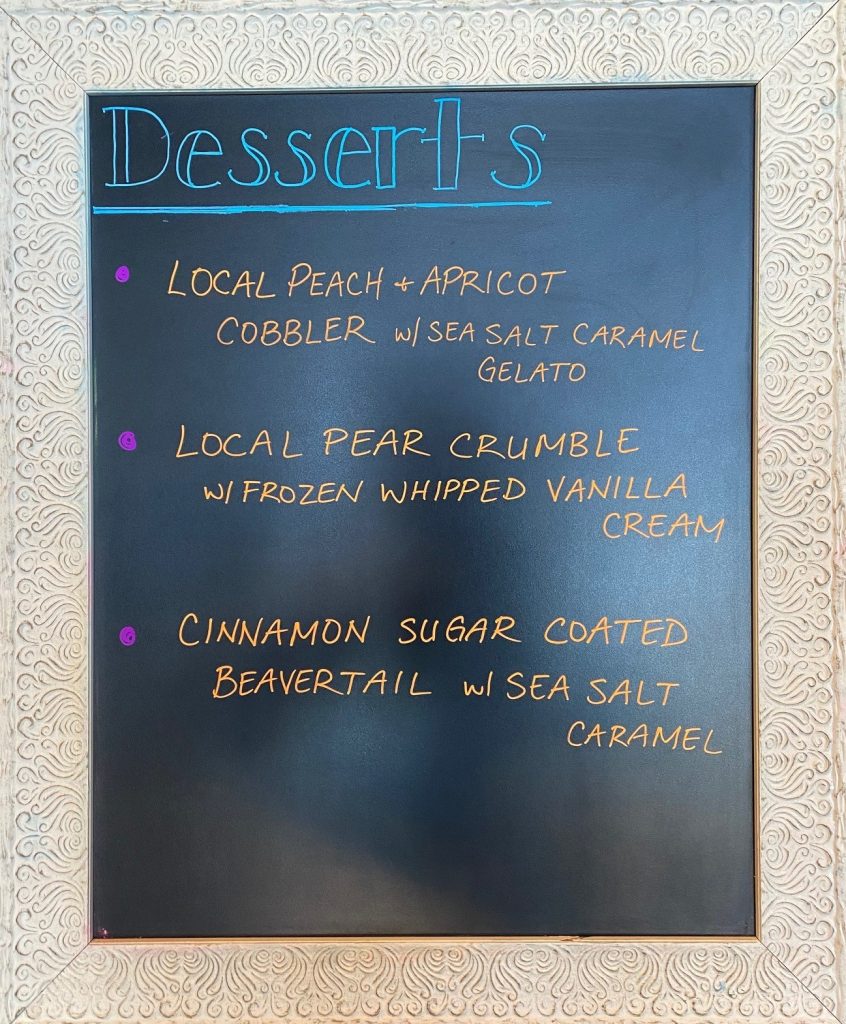 Desserts
LOCAL PEACH + APRICOT
COBBLER w/ SEA SALT CARAMEL
GELATO
LOCAL PEAR CRUMBLE
w/ FROZEN WHIPPED VANILLA
CREAM
CINNAMON SUGAR COATED
BEAVERTAIL w/ SEA SALT
CARAMEL